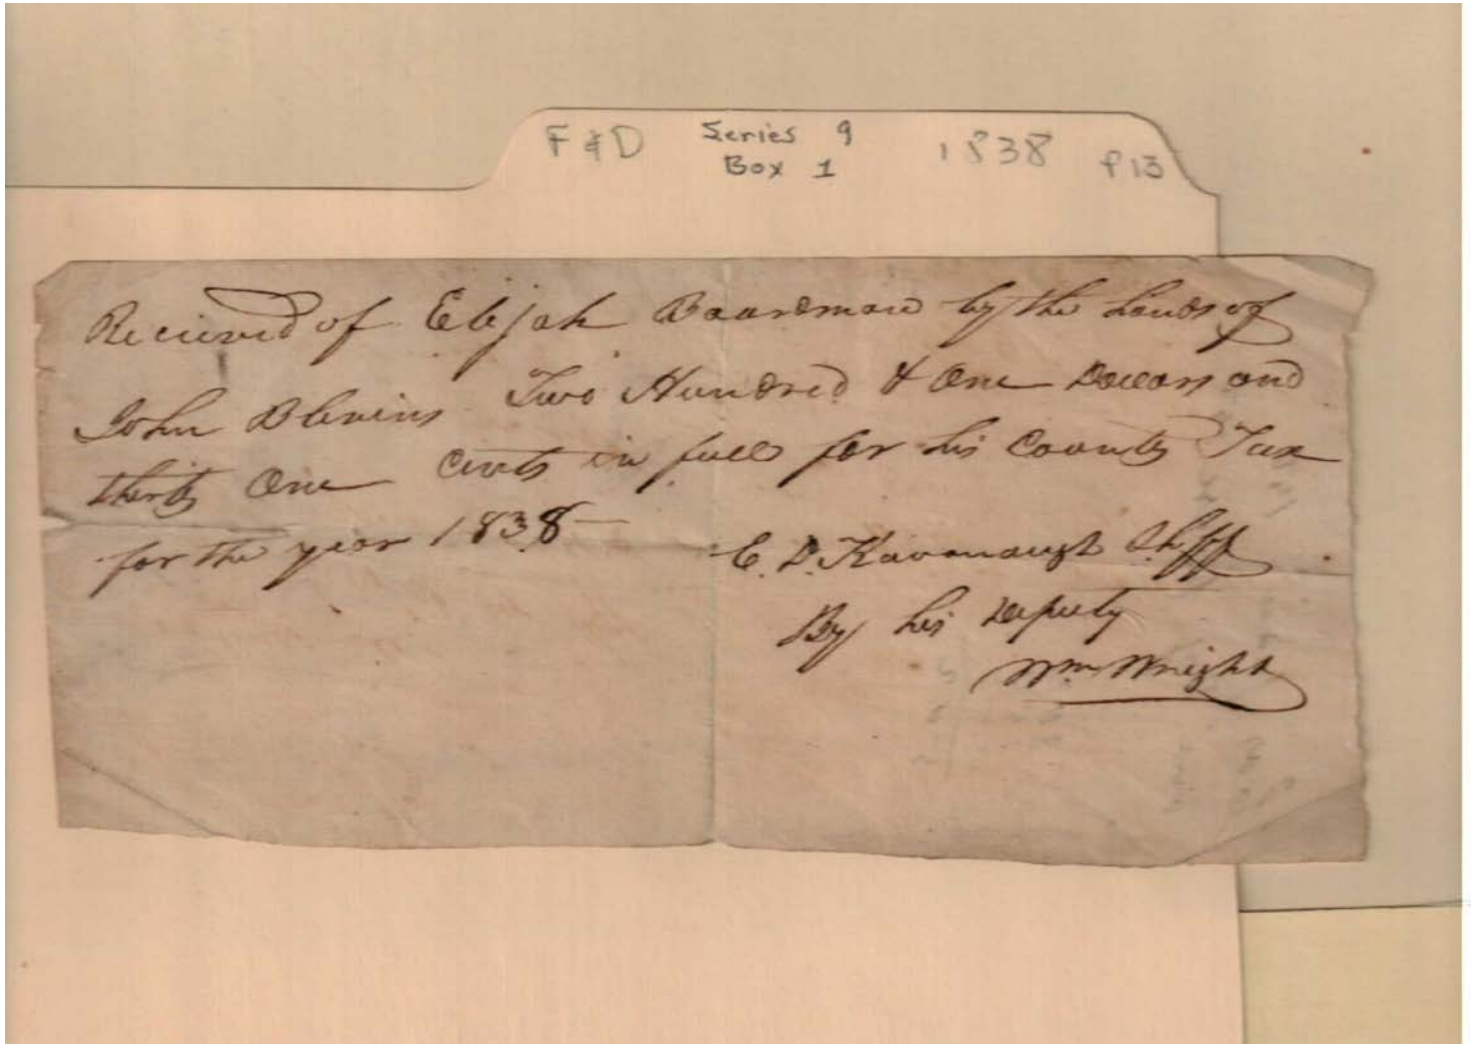 F & D Series 9 1838 P13
Box 1
Recieved of Elijah Boardman by the hands of
John Blevins Two Hundred & One Dollars and
thirty One Cents in full for his County Tax
for the year 1838—
C. D. Kavanaugh Shff
By his Deputy
Wm Wright